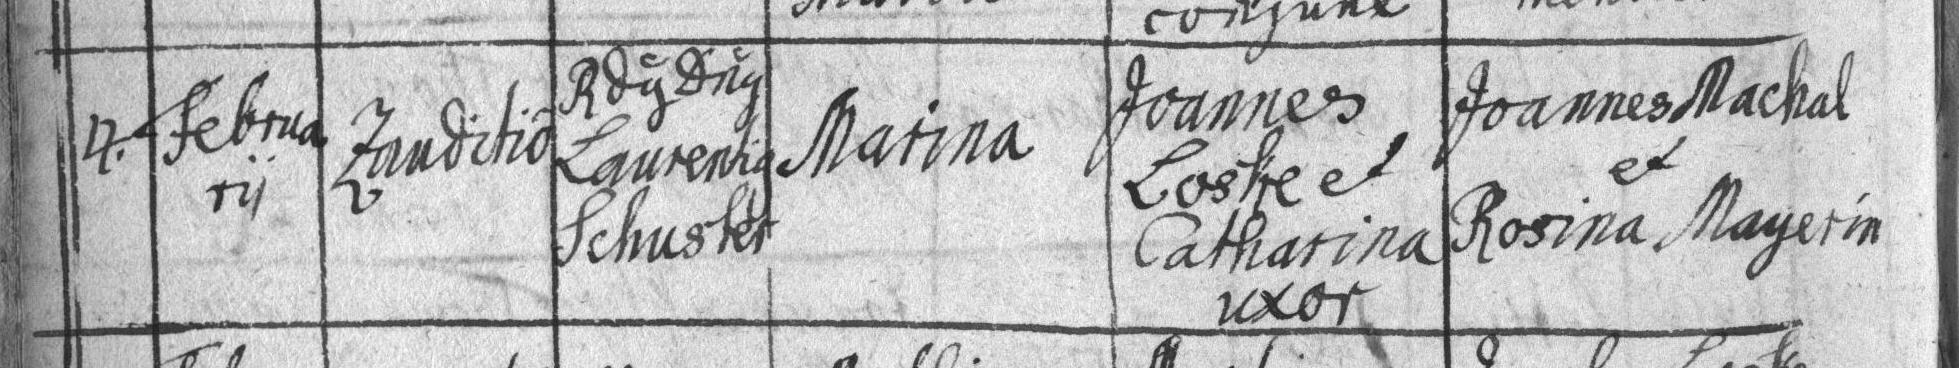 4.
Februa
rij
Zauditiō
Rdy Dny
Laurentiq
Schuster
Marina
Joannes
Loske et
Catharina
uxor
Joannes Machal
et
Rosina Mayerin